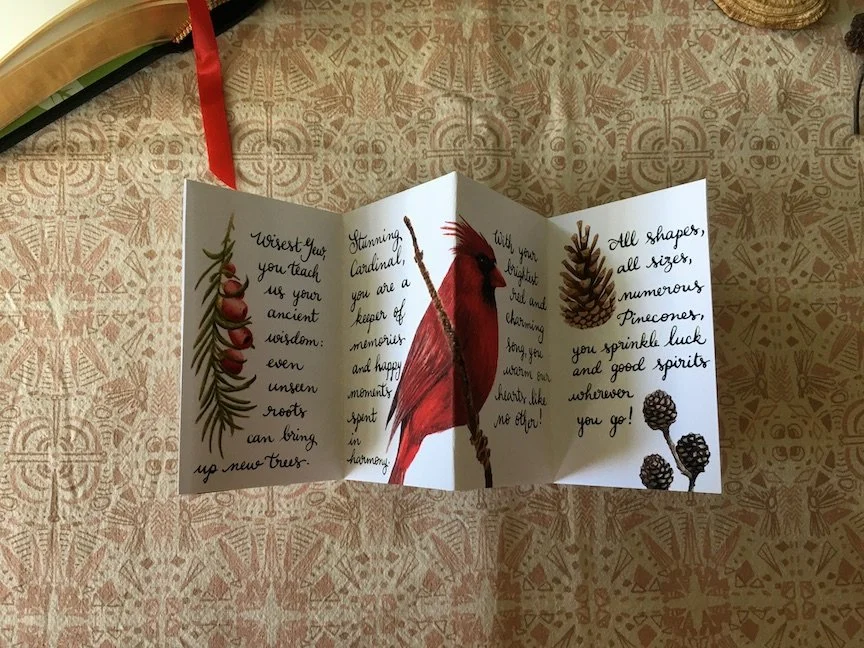 Wisest Yew,
you teach
us your
ancient
wisdom:
even
unseen
roots
can bring
up new trees.
Stunning
Cardinal,
you are a
keeper of
memories
and happy
moments
spent
in
harmony.
With your
brightest
red and
charming
song, you
warm our
hearts like
no other!
All shapes,
all sizes,
numerous
Pinecones,
you sprinkle luck
and good spirits
wherever
you go!